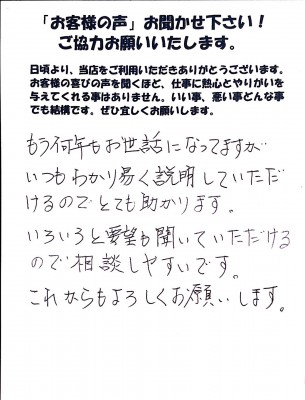 「お客様の声」お聞かせ下さい！
ご協力お願いいたします。
日頃より、当店をご利用いただきありがとうございます。
お客様の喜びの声を聞くほど、仕事に熱心とやりがいを
与えてくれる事はありません。いい事、悪い事どんな事
でも結構です。ぜひ宜しくお願いします。
もう何年もお世話になってますが
いつもわかり易く説明していただ
けるのでとても助かります。
いろいろと要望も聞いていただける
ので相談しやすいです。
これからもよろしくお願いします。